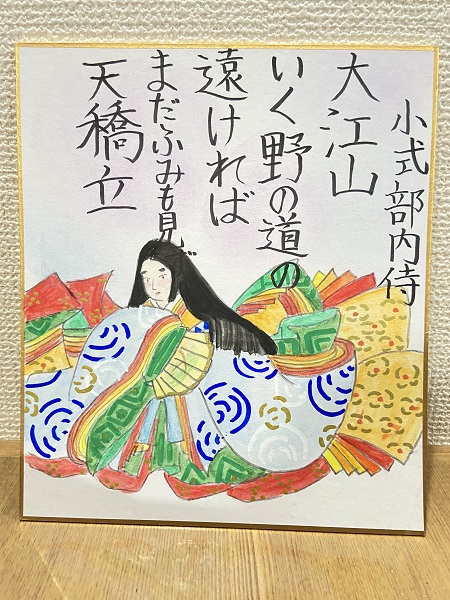 小式部内侍
大江山
いく野の道の
遠ければ
まだふみも見ず
天橋立